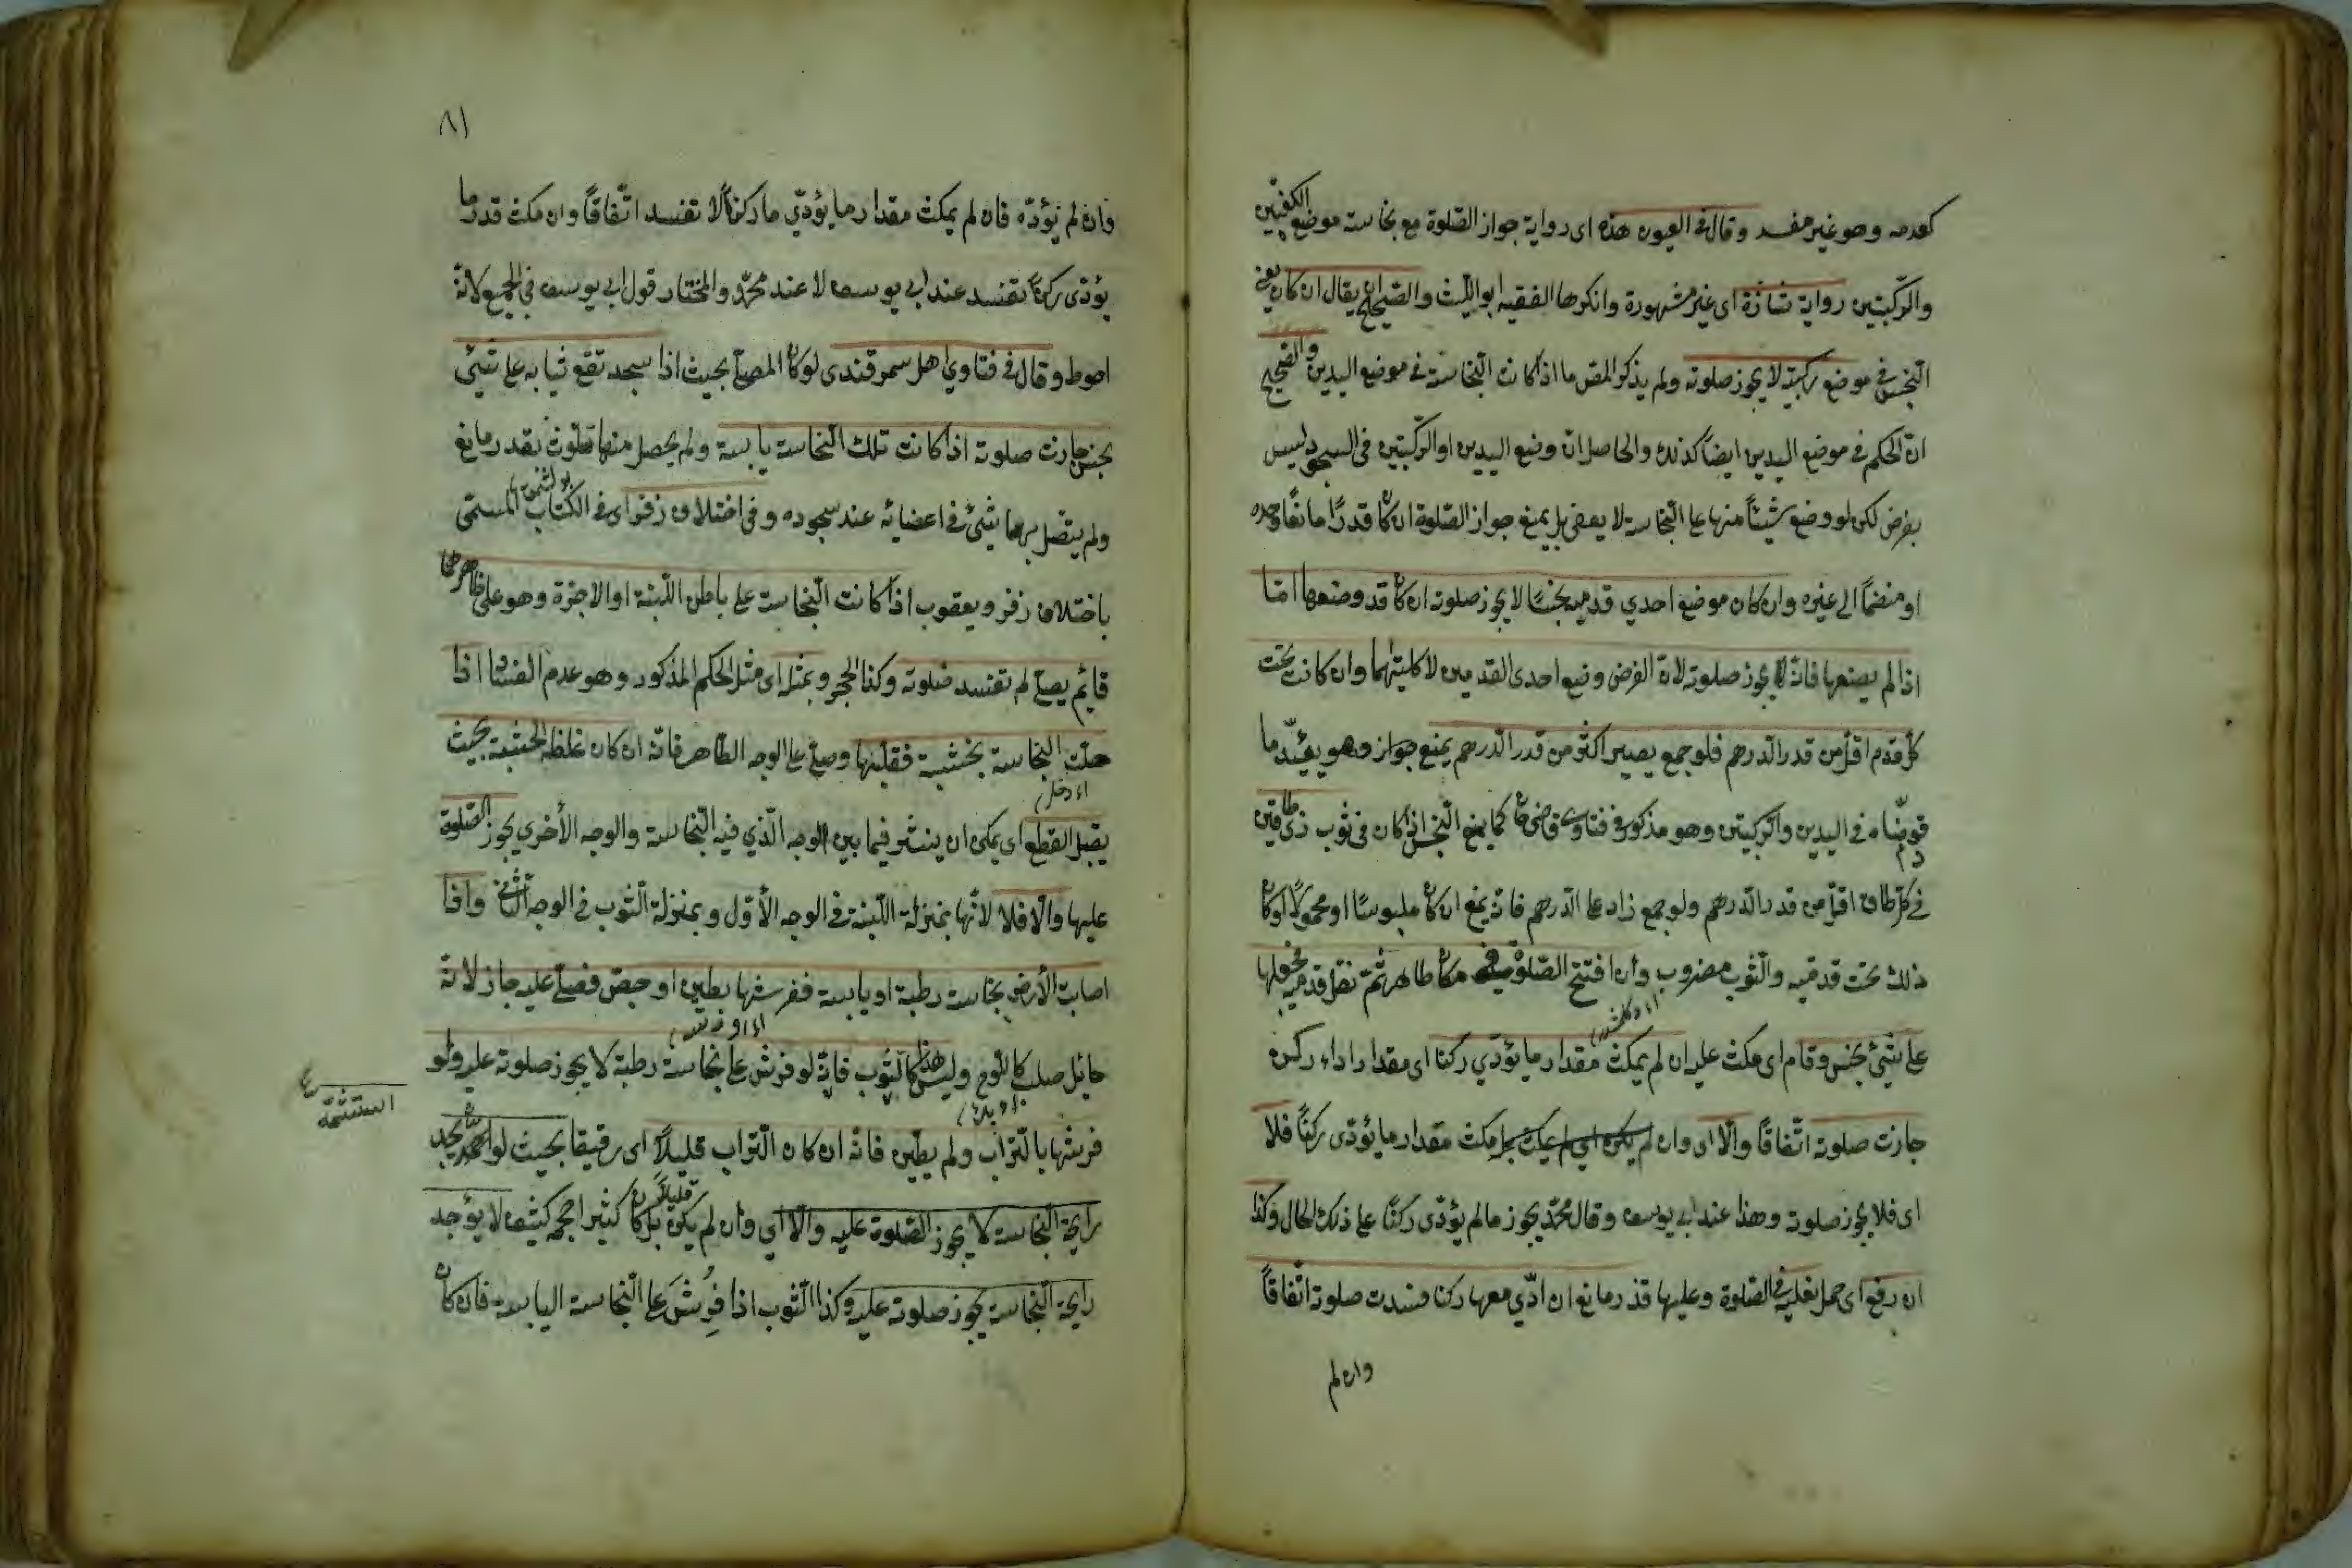 كعدمه وهو غير مفسد وقال فى العيون هذه اى رواية جواز الصّلوة مع نجاسة موضع الكفّين
والرّكبتين رواية شاذّة اى غير مشهورة وانكرها الفقيه ابو اللّيث والصّحيح ان يقال ان كان يعنى
النّجس فى موضع ركبتيه لا يجوز صلوته ولم يذكر المص ما اذا كانت النّجاسة فى موضع اليدين والصّحيح
انّ الحكم فى موضع اليدين ايضاً كذلك والحاصل انّ وضع اليدين او الرّكبتين فى السجود ليس
بفرض لكن لو وضع شيئاً منها على النّجاسة لا يعفى بل يمنع جواز الصّلوة ان كان قدرًا مانعًا وحده
او منضمًا الى غيره وان كان موضع احدي قدميه نجسًا لا يجوز صلوته ان كان قد وضعها امّا
اذا لم يضعها فانّه يجوز صلوته لانّ الفرض وضع احدى القدمين لا كليتهما وان كانت تحت
كل قدم اقلّ من قدر الدّرهم فلو جمع يصير اكثر من قدر الدّرهم يمنع جواز وهو يؤيّد ما
قدّمناه فى اليدين والرّكبتين وهو مذكور فى فتاوى قاضى خان كما يمنع النّجس اذا كان فى ثوب ذى طاقين
فى كلّ طاق اقلّ من قدر الدّرهم ولو جمع زاد على الدّرهم فانّه يمنع ان كان ملبوسًا او محمولًا او كان
ذلك تحت قدميه والثّوب مضروب وان افتتح الصّلوة فى مكان طاهر ثمّ نقل قدميه فجعلها
على شيئ نجس وقام اى مكث عليه ان لم يمكث مقدار ما يؤدّي ركنا اى مقدار اداء ركن
جازت صلوته اتّفاقًا والّا اى وان لم يكن اى لم يمكث بل مكث مقدار ما يؤدّى ركنًا فلا
اى فلا يجوز صلوته وهذا عند ابى يوسف وقال محمّد يجوز مالم يؤدّى ركنًا على ذلك الحال وكذا
ان رفع اى حمل نعليه فى الصّلوة وعليها قذر مانع ان ادّي معها ركنا فسدت صلوته اتّفاقًا
وان لم
٨١
وان لم يؤدّه فان لم يمكث مقدار ما يؤدّي ما ركنًا لا تفسد اتّفاقًا وان مكث قدر ما
يؤدّى ركنًا تفسد عند ابى يوسف لا عند محمّد والمختار قول ابى يوسف فى الجميع لانّه
احوط وقال فى فتاوي اهل سمرقندى لو كان المصلّى بحيث اذا سجد تقع ثيابه على شيئ
نجس جازت صلوته اذا كانت تلك النّجاسة يابسة ولم يحصل منها تلوث بقدر مانع
ولم يتّصل بها شيئ فى اعضائه عند سجوده وفى اختلاف زفر اى فى الكتاب المسمّى
باختلاف زفر ويعقوب اذا كانت النّجاسة على باطن اللّبنة او الاجرّة وهو على ظاهرها
قايم يصلّى لم تفسد صلوته وكذا الحجر وبمثله اى مثل الحكم المذكور وهو عدم الفساد اذا
حلّت النّجاسة بخشبة فقلّبها وصلّى على الوجه الطّاهر فانّه ان كان غلظ الخشبة بحيث
يقبل القطع اى يمكن ان ينشر فيما بين الوجه الّذي فيه النّجاسة والوجه الأخري يجوز الصّلوة
عليها والّا فلا لانّها بمنزلة اللّبنة فى الوجه الأوّل وبمنزلة الثّوب فى الوجه الثّانى واذا
اصابت الأرض نجاسة رطبة او يابسة ففرشها بطين او جص فصلّى عليه جاز لانّه
حائل صلب كاللّوح وليس هذا كالثّوب فانّه لو فرش على نجاسة رطبة لا يجوز صلوته عليه ولو
فرشها بالتّراب ولم يطيّن فانّه ان كان التّراب قليلاً اى رقيقا بحيث لو يجد
رايحة النّجاسة لا يجوز الصّلوة عليه والّا اي وان لم يكن قليلاً بل كان كثيرا حجمه كثيف لا يوجد
رايحة النّجاسة يجوز صلوته عليه وكذا الثّوب اذا فرش على النّجاسة اليابسة فان كان